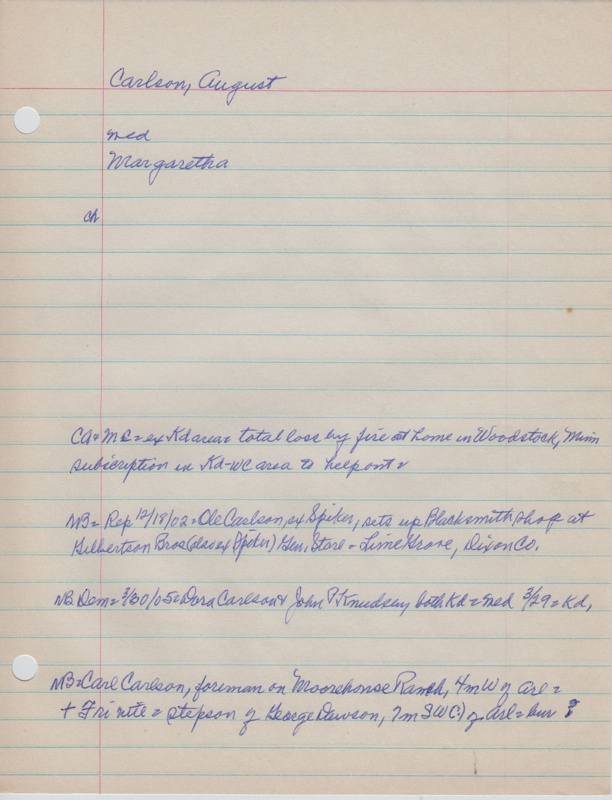 Carlson, August
med
Margaretha
ch
CA + MC = ex Kd area = total loss by fire at home in Woodstock, Minn
subscription in Kd-WC area to help out =
NB = Rep 12/18/02 = Ole Carlson, ex Spiker, sets up Blacksmith shop at
Gilbertson Bros (also ex Spiker) Gen. Store = Lime Grove, Dixon Co.
NB Dem = 3/30/05 = Dora Carlson + John P Knudsen, both Kd = med 3/29 = Kd,
NB = Carl Carlson, foreman on Moorehouse Ranch, 4m W of Arl =
+ Fri nite = stepson of George Dawson, 7m SW of Arl = bur ?